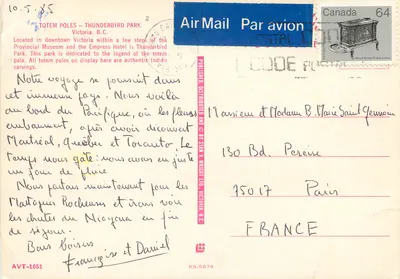 10.5.85
TOTEM POLES – THUNDERBIRD PARK
Victoria, B.C.
Located in downtown Victoria within a few steps of the
Provincial Museum and the Empress Hotel is Thunderbird
Park. This park is dedicated to the legend of the totem
pole. All totem poles on display here are authentic Indian
carvings.
Air Mail Par avion
Canada 64
CODE
Notre voyage se poursuit dans
cet immense pays. Nous voilà
au bord du Pacifique, où les fleurs
embaument, après avoir découvert
Montréal, Québec et Toronto. Le
temps nous gâte: nous avons eu juste
un jour de pluie.
Nous partons maintenant pour les
Montagnes Rocheuses et irons voir
les chutes du Niagara en fin
de séjour.
Bons baisers
Françoise et Daniel
Monsieur et Madame B. Marie Saint Germain
130 Bd. Pereire
75017 Paris
FRANCE
AVT-1051